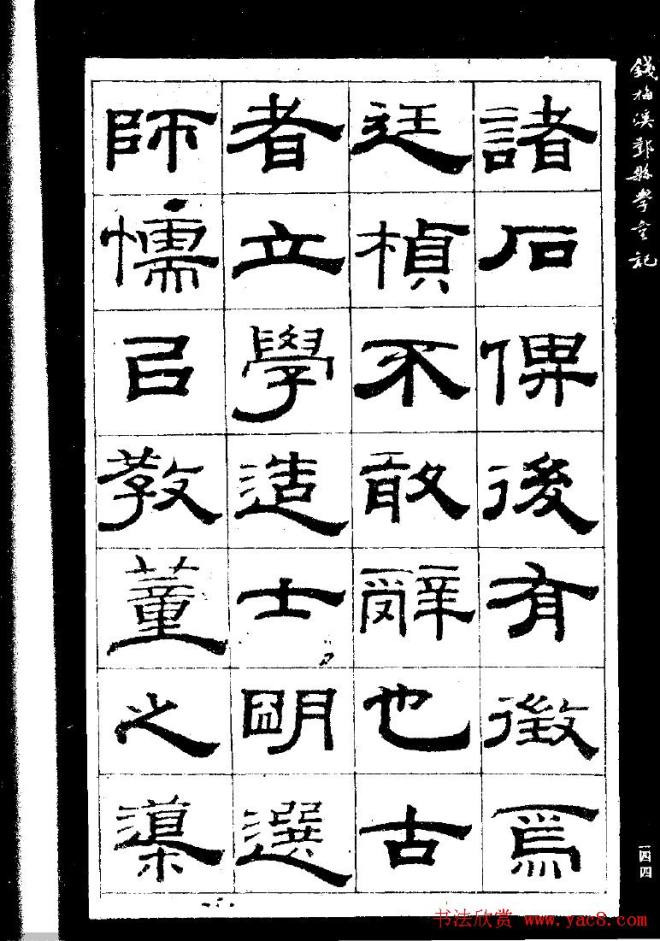 錢梅溪縣學宮記
諸石俾後有徵爲
廷楨不敢辭也古
者立學造士朙選
師懦㠯教董之
一四四
书法欣赏 www.yac8.com